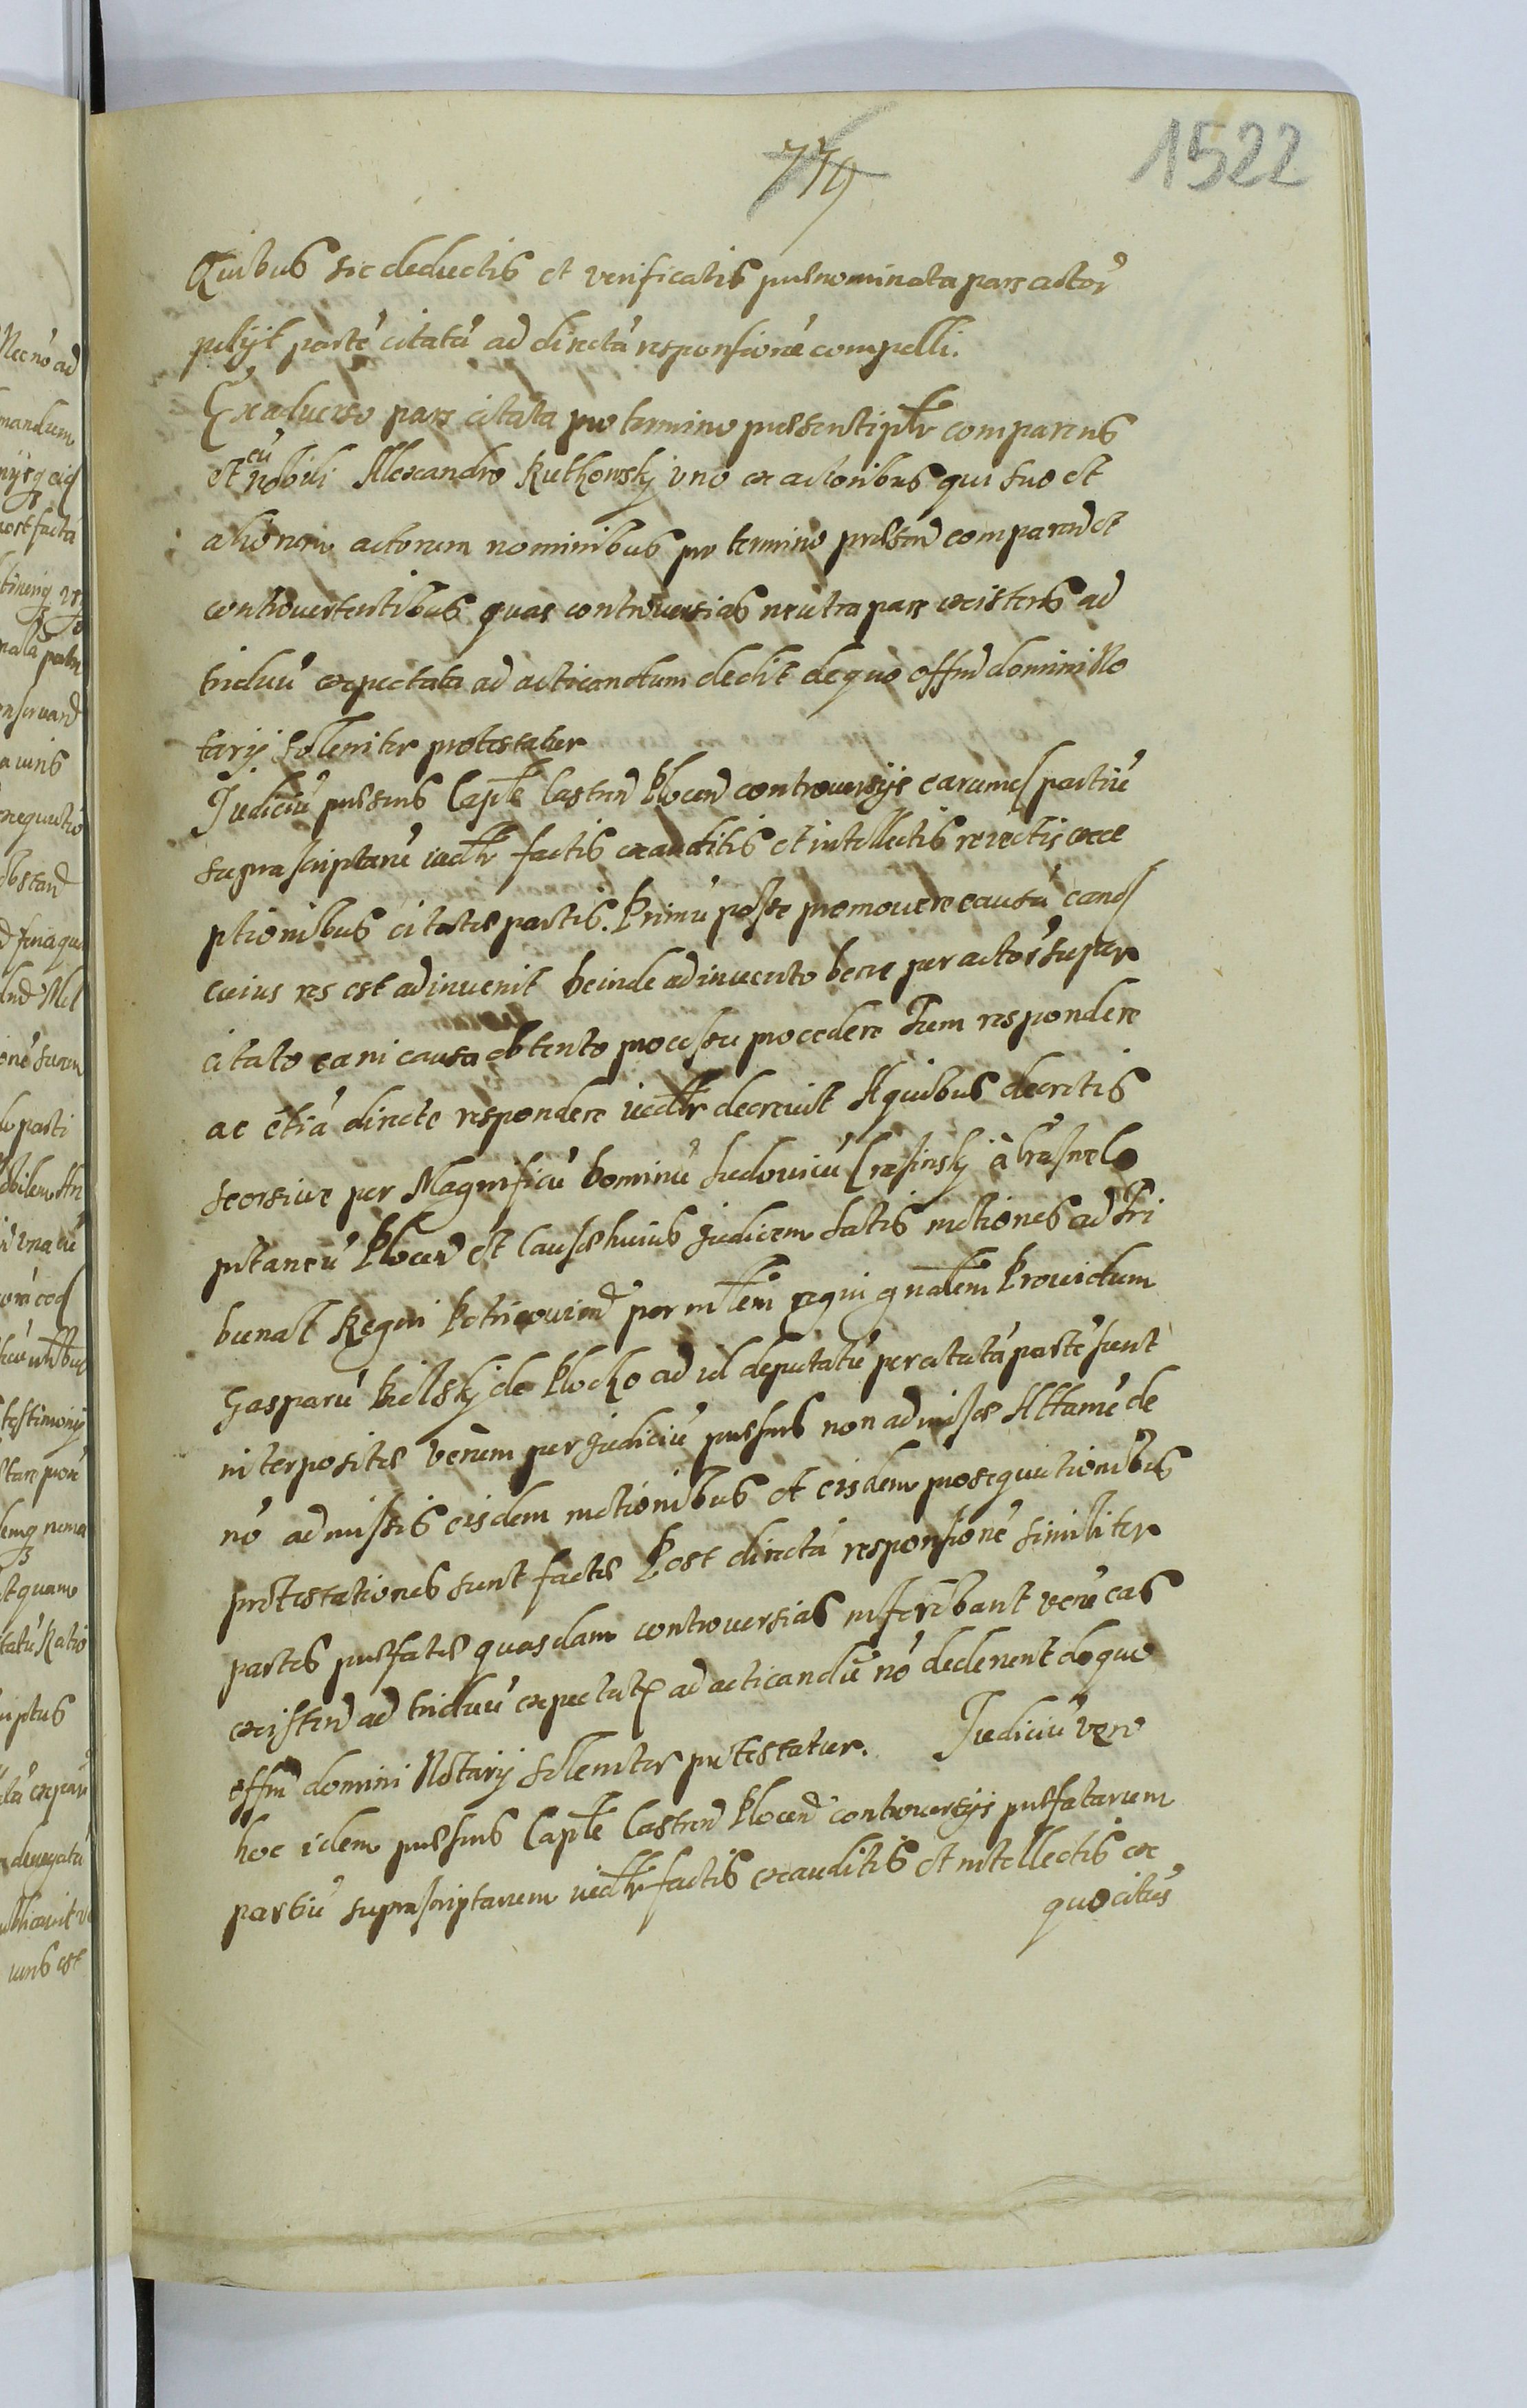 779
1522
Quibus sic deductis et verificatis praenominata pars actor
petijt parté citatá ad directá responsioné compelli.
Ex aduerso pars citata pro termino praesenti plr comparens
et cu nobili Alexandro Rutkowskj uno ex actoribus qui suo et
aliorum actorum nominibus pro termino praesen comparen et
controuertentibus quas controuersias neutra pars existens ad
triduú expectata ad acticandum dedit de quo offm domini No
tarij solleniter protestatur
Judiciú praesens Caple Castren Plocen controuersijs earumd partiú
suprascriptarú iudlr factis exauditis et intellectis reiectis exce
ptionibus citatae partis. Primú posse promouere causá eand
cuius res est adinuenit Deinde adinuento bene per actoré super
citato eani causa obtento processu procedere Tum respondere
ac etiá directe respondere iudlr decreuit A quibus decretis
seorsiue per Magnificú Dominú Ludouicú Crasinskj à Crasne Co
pitaneú Plocen et Causae huius Judicem latis motiones ad Tri
bunal Regni Petricouien per mlem regni gnalem Prouidum
Gasparú Bielskj de Plocko ad id deputatú per citatá parté sunt
interpositae verum per Judiciú praesens non admissae Attamé de
nó admissis eisdem motionibus et eisdem prosequutionibus
protestationes sunt factae Post directá responsioné similiter
partes praefatae quasdam controuersias inferebant verú eas
existen ad triduú expectatae ad acticandú nó dederunt de quo
offm domini Notarij solleniter protestatur. Judiciú vero
hoc idem praesens Caple Castren Plocen controuersijs praefatarum
partiú suprascriptarum iudlr factis exauditis et intellectis ex
quo citus